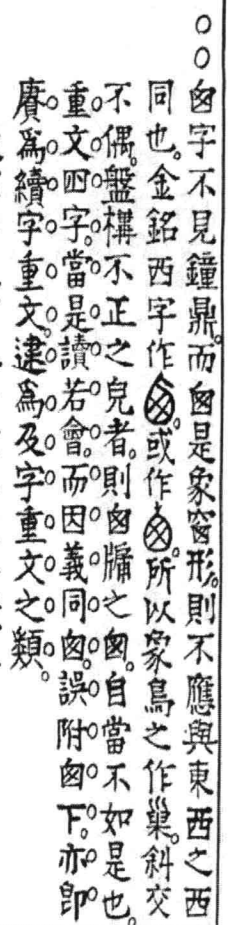 ○○囪字不見鐘鼎。而囪是象窗形。則不應與東西之西
同也。金銘西字作。或作。所以象鳥之作巢。斜交
不偶。盤構不正之皃者。則囪牖之囪。自當不如是也。
重文四字。當是讀若會。而因義同囪。誤附囪下。亦即
賡爲續字重文。逮爲及字重文之類。